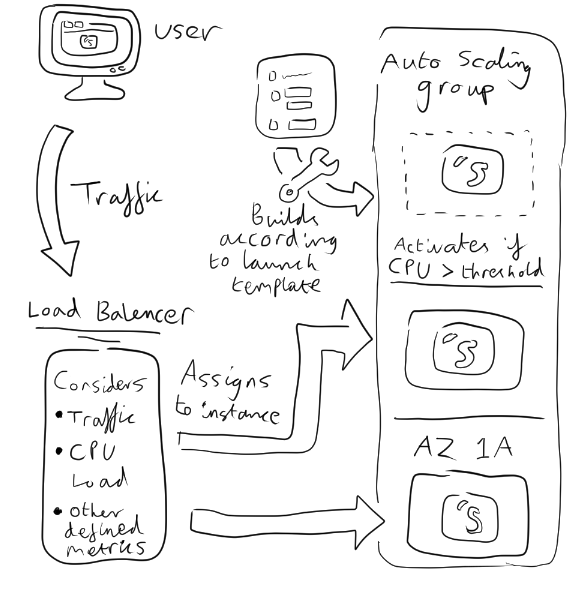 User
Traffic
Load Balencer
Considers
• Traffic
• CPU
Load
• other
defined
metrics
Assigns
to instance
Builds
according
to launch
template
Auto Scaling
group
's
Activates if
CPU > threshold
's
AZ 1A
's